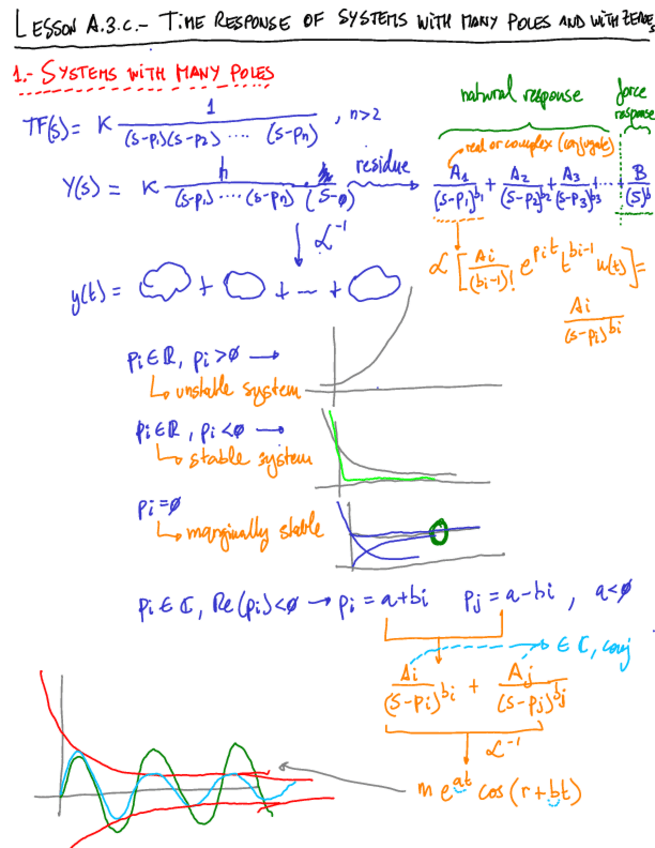 LESSON A.3.C.- TIME RESPONSE OF SYSTEMS WITH MANY POLES AND WITH ZEROS
1.- SYSTEMS WITH MANY POLES
natural response force response
TF(s) = K 1 / (s-p1)(s-p2) .... (s-pn) , n>2
real or complex (conjugate)
Y(s) = K h / (s-p1) .... (s-pn) (s-ø) residue → A1/(s-p1)^b1 + A2/(s-p2)^b2 + A3/(s-p3)^b3 + ... + B/(s)^b
↓ ℒ^-1
y(t) = + + ... +
ℒ [ Ai/(bi-1)! e^(pi t) t^(bi-1) u(t) ] =
Ai/(s-pi)^bi
pi ∈ ℝ, pi > ø →
↳ unstable system
pi ∈ ℝ, pi < ø →
↳ stable system
pi = ø
↳ marginally stable
pi ∈ ℂ, Re(pi) < ø → pi = a+bi pj = a-bi , a<ø
∈ ℂ, conj
Ai/(s-pi)^bi + Aj/(s-pj)^bj
↓ ℒ^-1
m e^(at) cos (r+bt)